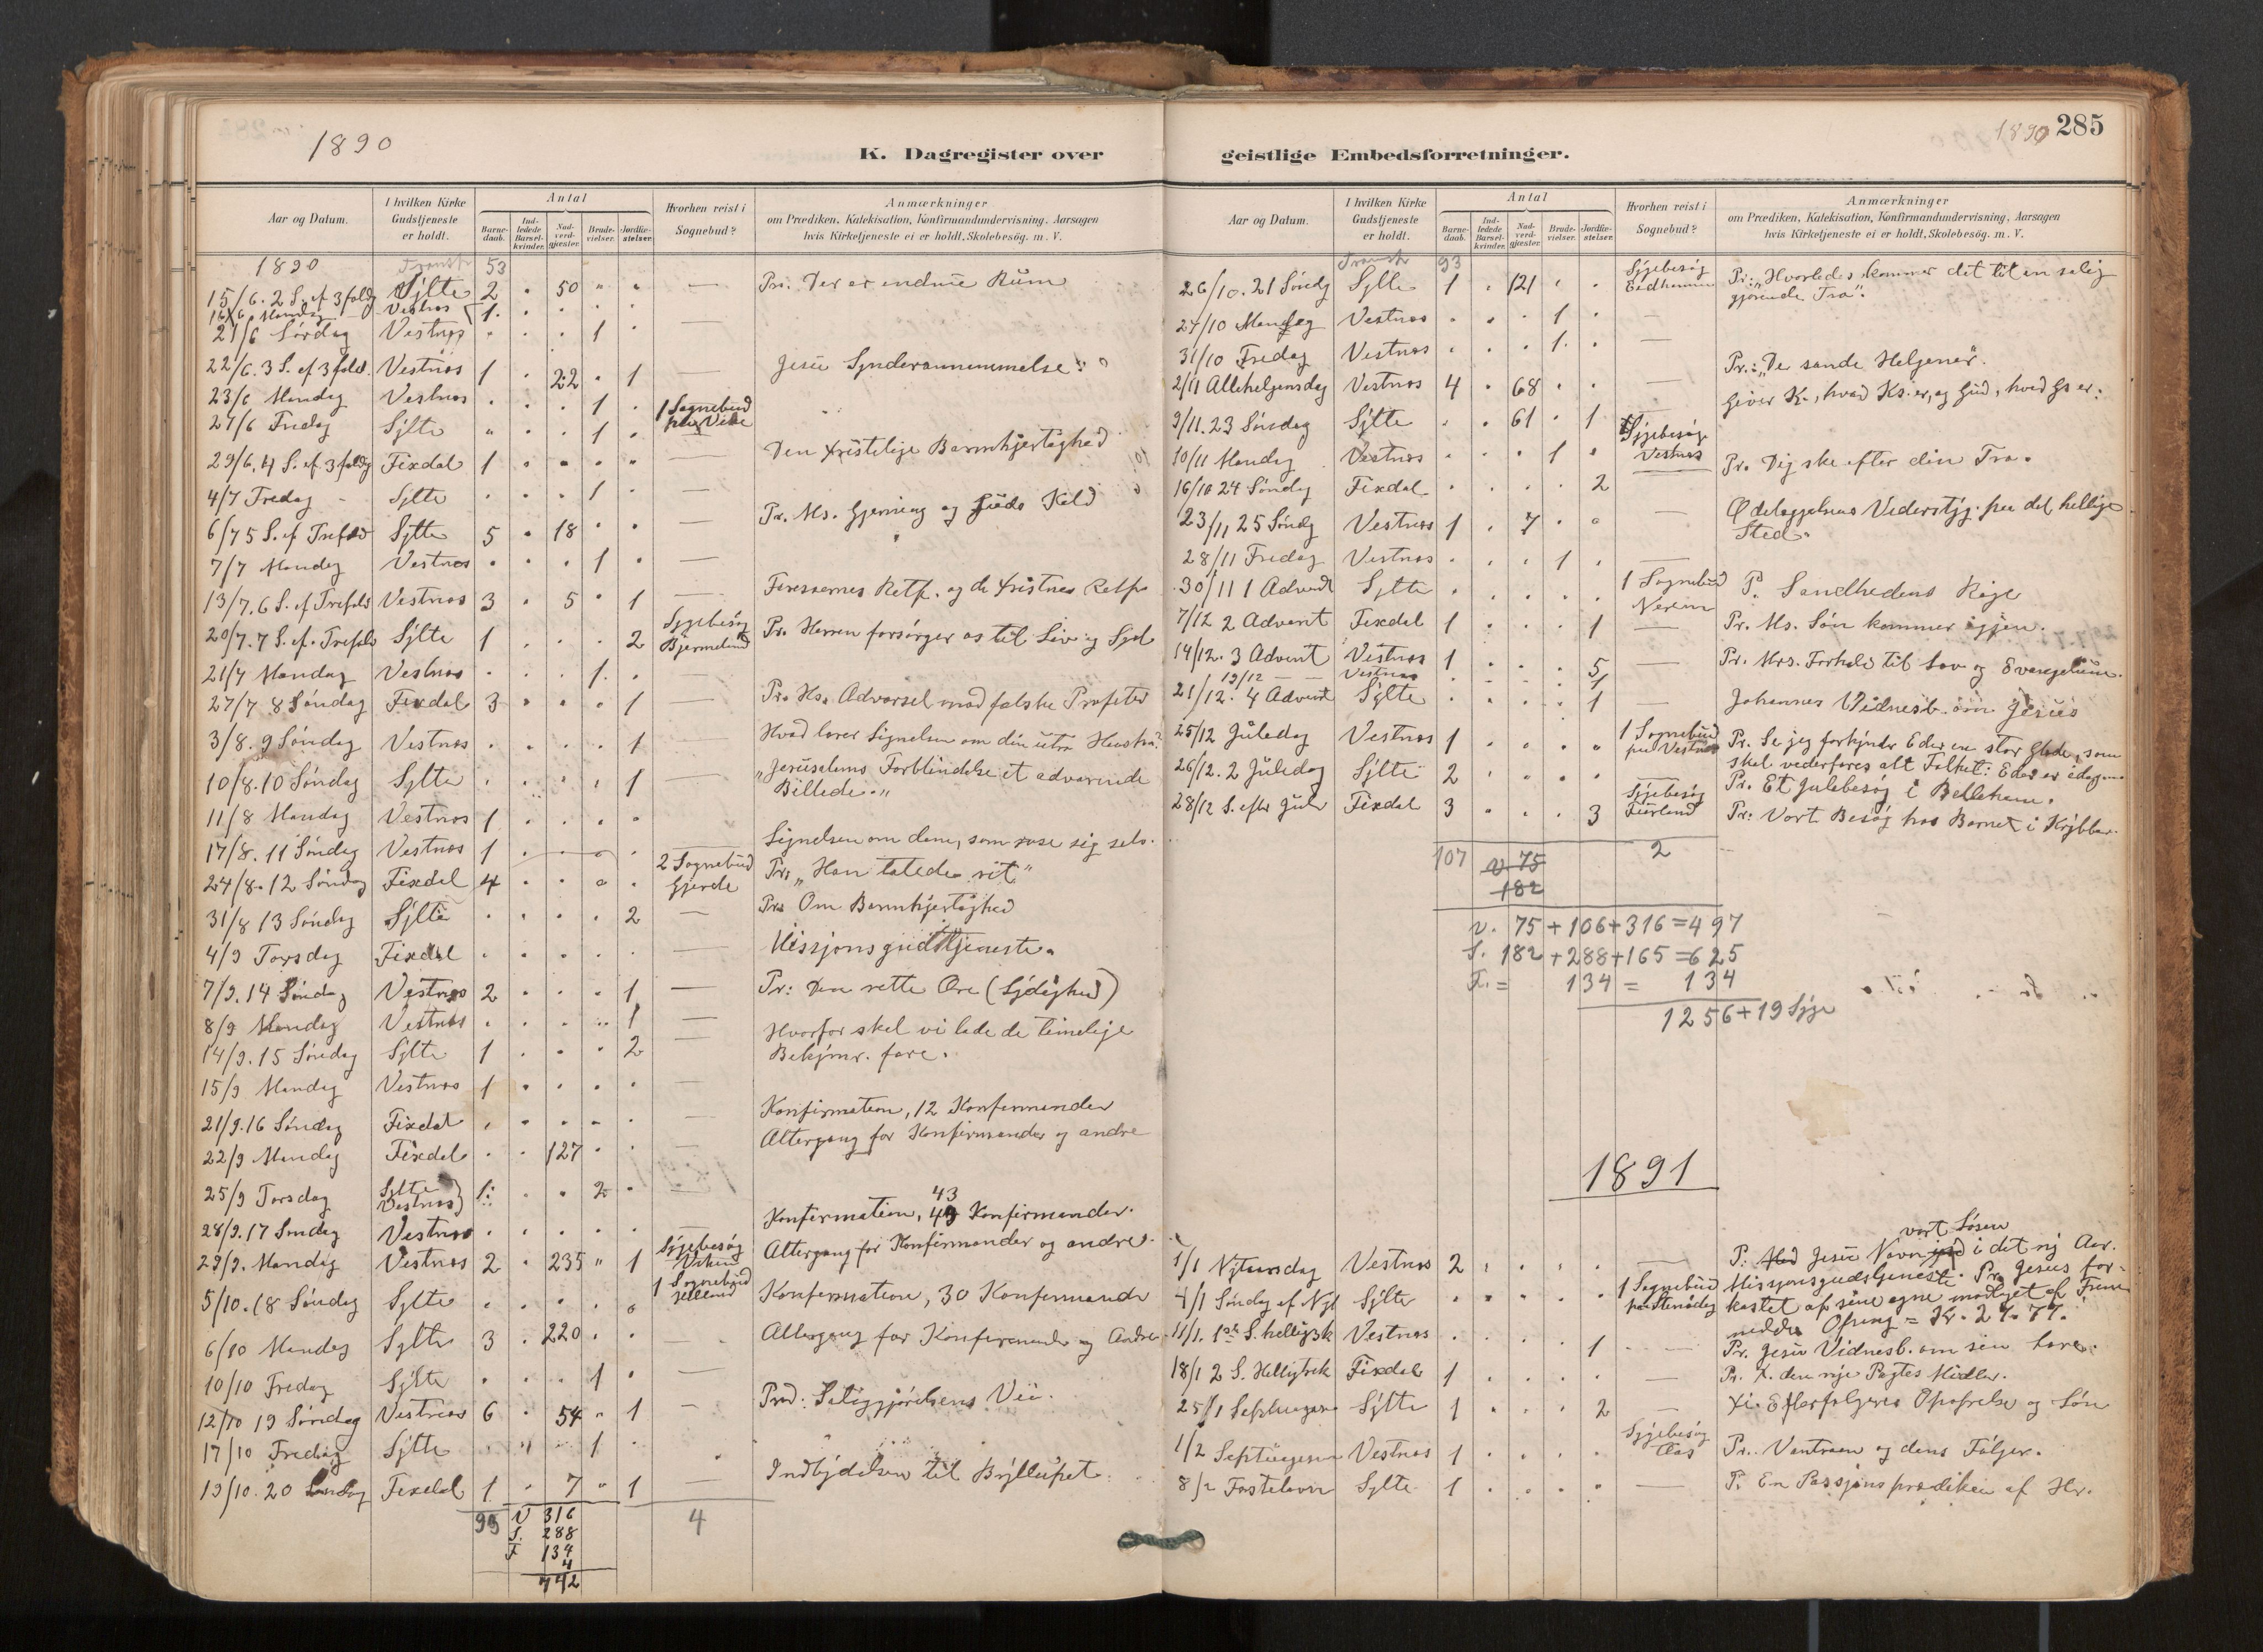 1890
K. Dagregister over
Aar og Datum.
I hvilken Kirke Gudstjeneste er holdt.
Antal
Barnedaab.
Indledede Barselkvinder.
Nadverdgjæster.
Brudevielser.
Jordfæstelser.
Hvorhen reist i Sognebud?
Anmærkninger
om Prædiken, Katekisation, Konfirmandundervisning. Aarsagen
hvis Kirketjeneste ei er holdt, Skolebesög. m. V.
1890 Transp 53
15/6. 2 S. ef 3foldg Sylte 2 50 Pr. Der er endnu Rum
16/6 Mandag Vestnæs 1
21/6 Lørdag Vestnæs 1
22/6. 3 S. ef 3fold. Vestnæs 1 22 1 Jesu Synderannammelse
23/6 Mandag Vestnæs 1 1 Sognebud
27/6 Fredag Sylte 1
29/6. 4 S. ef 3foldg Fixdal 1 Den kristelige Barmhjertighed
4/7 Fredag - Sylte 1
6/7 5 S. ef Trefold Sylte 5 18 Pr. Ms. Gjerning og Guds Kald
7/7 Mandag Vestnæs 1
13/7. 6 S. ef Trefold Vestnæs 3 5 1 Farisæernes Retf. og de Kristnes Retf.
20/7. 7 S. ef. Trefold Sylte 1 2 Sygebesøg Bjermeland Pr. Herren forsørger os til Liv og Sjæl
21/7 Mandag Vestnæs 1
27/7 8 Søndag Fixdal 3 1 Pr. Hs. Advarsel mod falske Profeter
3/8. 9 Søndag Vestnæs 1 Hvad lærer Lignelsen om din utro Hush.?
10/8. 10 Søndag Sylte 1 "Jerusalems Forblindelse et advarende
Billede."
11/8 Mandag Vestnæs 1
17/8. 11 Søndag Vestnæs 1 Lignelsen om dem, som rose sig selv.
24/8. 12 Søndag Fixdal 4 2 Sognebud Gjerde Pr. "Han talede ret"
31/8 13 Søndag Sylte 2 Pr. Om Barmhjertighed
4/9 Torsdag Fixdal Missionsgudstjeneste.
7/9. 14 Søndag Vestnæs 2 1 Pr: Den rette Ære (Lydighed)
8/9 Mandag Vestnæs 1
14/9. 15 Søndag Sylte 1 2 Hvorfor skal vi lade de timelige
Bekymr. fare.
15/9 Mandag Vestnæs 1
21/9. 16 Søndag Fixdal Konfirmation, 12 Konfirmander
22/9 Mandag Fixdal 127 Altergang for Konfirmander og andre
25/9 Torsdag Sylte Vestnæs 1 2
28/9. 17 Søndag Vestnæs Konfirmation, 43 Konfirmander.
29/9. Mandag Vestnæs 2 235 1 Sygebesøg Viken Altergang for Konfirmander og andre.
5/10. 18 Søndag Sylte 1 Sognebud Helland Konfirmation, 30 Konfirmander
6/10 Mandag Sylte 3 220 Altergang for Konfirmander og Andre
10/10 Fredag Sylte 1
12/10 19 Søndag Vestnæs 6 54 1 Præd: Saliggjørelsens Vei.
17/10 Fredag Sylte 1
19/10. 20 Søndag Fixdal 1 7 1 Indbydelsen til Bryllupet
93 V 316 4
S. 288
F 134
4
742
1890 285
geistlige Embedsforretninger.
Aar og Datum.
I hvilken Kirke Gudstjeneste er holdt.
Antal
Barnedaab.
Indledede Barselkvinder.
Nadverdgjæster.
Brudevielser.
Jordfæstelser.
Hvorhen reist i Sognebud?
Anmærkninger
om Prædiken, Katekisation, Konfirmandundervisning, Aarsagen
hvis Kirketjeneste ei er holdt, Skolebesög. m. V.
Transp 93
26/10. 21 Søndg Sylte 1 121 Sygebesøg Eidhammer Pr.: "Hvorledes kommer det til en salig
gjørende Tro".
27/10 Mandag Vestnæs 1
31/10 Fredag Vestnæs 1
2/11 Allehelgensdag Vestnæs 4 68 Pr.: "De sande Helgener".
9/11. 23 Søndag Sylte 61 1 Giver K., hvad Ks. er, og Gud, hvad Gs er.
10/11 Mandag Vestnæs 1 Sygebesøg Vestnæs
16/10 24 Søndg Fixdal 2 Pr. Dig ske efter din Tro.
23/11 25 Søndg Vestnæs 1 7 Ødelæggelsens Vederstyg. paa det hellige
Sted.
28/11 Fredag Vestnæs 1
30/11 1 Advent Sylte 1 Sognebud P. Sandhedens Rige
7/12 2 Advent Fixdal 1 1 Pr. Ms. Søn kommer igjen.
14/12. 3 Advent Vestnæs 1 5 Pr. Mrs. Forhold til Lov og Evangelium.
19/12 — — Vestnæs 1
21/12. 4 Advent Sylte 1 Johannes Vidnesb. om Jesus
25/12 Juledag Vestnæs 1 1 Sognebud paa Vestnæs Pr. Se jeg forkynder Eder en stor Glæde, som
skal vederfares alt Folket: Eder er idag
26/12. 2 Juledag Sylte 2 Pr. Et Julebesøg i Betlehem.
28/12 S. efter Jul Fixdal 3 3 Sygebesøg Furland Pr: Vort Besøg hos Barnet i Krybben
107 V. 75 2
182
V. 75 + 106 + 316 = 497
S. 182 + 288 + 165 = 625
F. = 134 = 134
1256 + 19 Syge
1891
1/1 Nytaarsdag Vestnæs 2 P: Med Jesu Navn vort Løsen i det ny Aar.
4/1 Søndag ef Nyt Sylte 1 Sognebud Missionsgudstjeneste. Pr. Jesus for-
kastet af sine egne modtaget af Frem
mede. Ofring = Kr. 27.77.
11/1. 1ste S. helligtrek Vestnæs 1 Pr. Jesu Vidnesb. om sin Lære.
18/1 2 S. Helligtrek Fixdal 1 Pr. K. den nye Pagtes Midler.
25/1 Septuages Sylte 1 2 Xi. Efterfølgeres Opofrelse og Løn
1/2 Septuages Vestnæs 1 Sygebesøg Aas Pr. Vantroen og dens Følger.
8/2 Fastelavn Sylte 1 P. En Passionsprædiken af Hr.